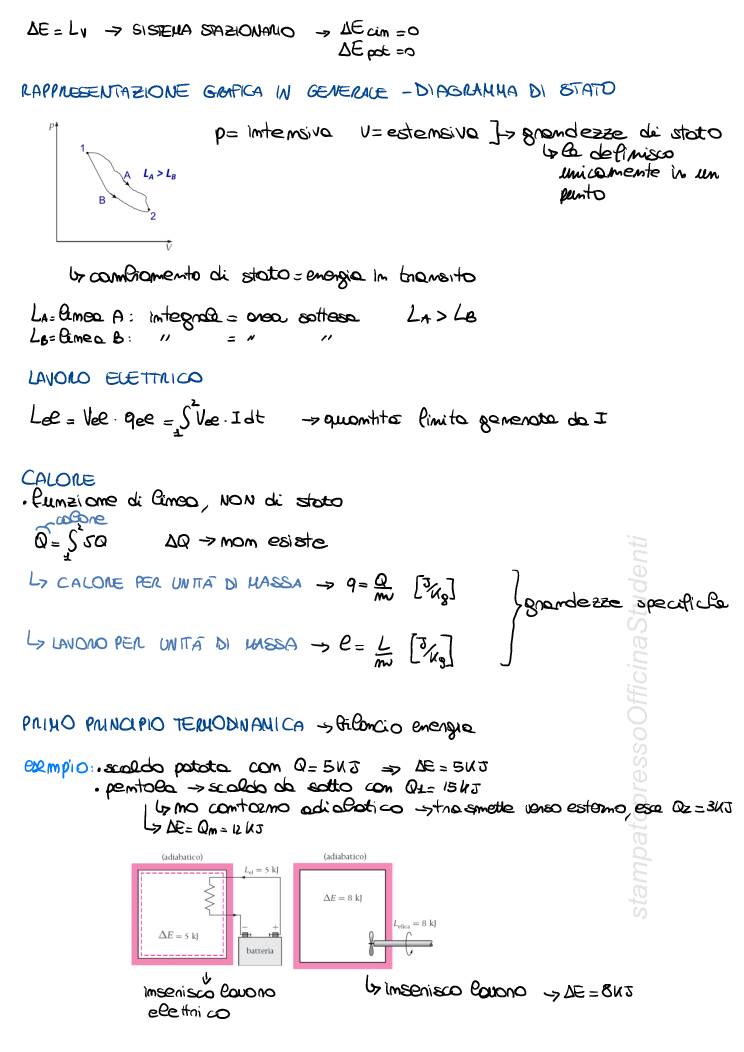 ΔE = Lv → SISTEMA STAZIONARIO → ΔE cin = 0
ΔE pot = 0
RAPPRESENTAZIONE GRAFICA IN GENERALE - DIAGRAMMA DI STATO
p = intensiva V = estensiva ]→ grandezze di stato
↳ le definisco
unicamente in un
punto
P
1
A LA > LB
B
2
V
↳ cambiamento di stato = energia in transito
LA = linea A : integrale = area sottesa LA > LB
LB = linea B : " = " "
LAVORO ELETTRICO
Lel = Vel · qel = ∫₁² Vel · I dt → quantità finita generata da I
CALORE
• funzione di linea, NON di stato
calore
Q = ∫₁² δQ ΔQ → non esiste
↳ CALORE PER UNITÀ DI MASSA → q = Q/m [J/kg]
} grandezze specifiche
↳ LAVORO PER UNITÀ DI MASSA → l = L/m [J/kg]
PRIMO PRINCIPIO TERMODINAMICA → bilancio energia
esempio: • scaldo patata con Q = 5KJ ⇒ ΔE = 5KJ
• pentola → scaldo da sotto con Q1 = 15KJ
↳ no contorno adiabatico → trasmette verso esterno, esce Q2 = 3KJ
↳ ΔE = Qn = 12 KJ
(adiabatico) (adiabatico)
Lel = 5 kJ
ΔE = 8 kJ
Lelica = 8 kJ
ΔE = 5 kJ
− +
batteria
↓
inserisco lavoro
elettrico
↳ inserisco lavoro → ΔE = 8KJ
stampatopressoOfficinaStudenti